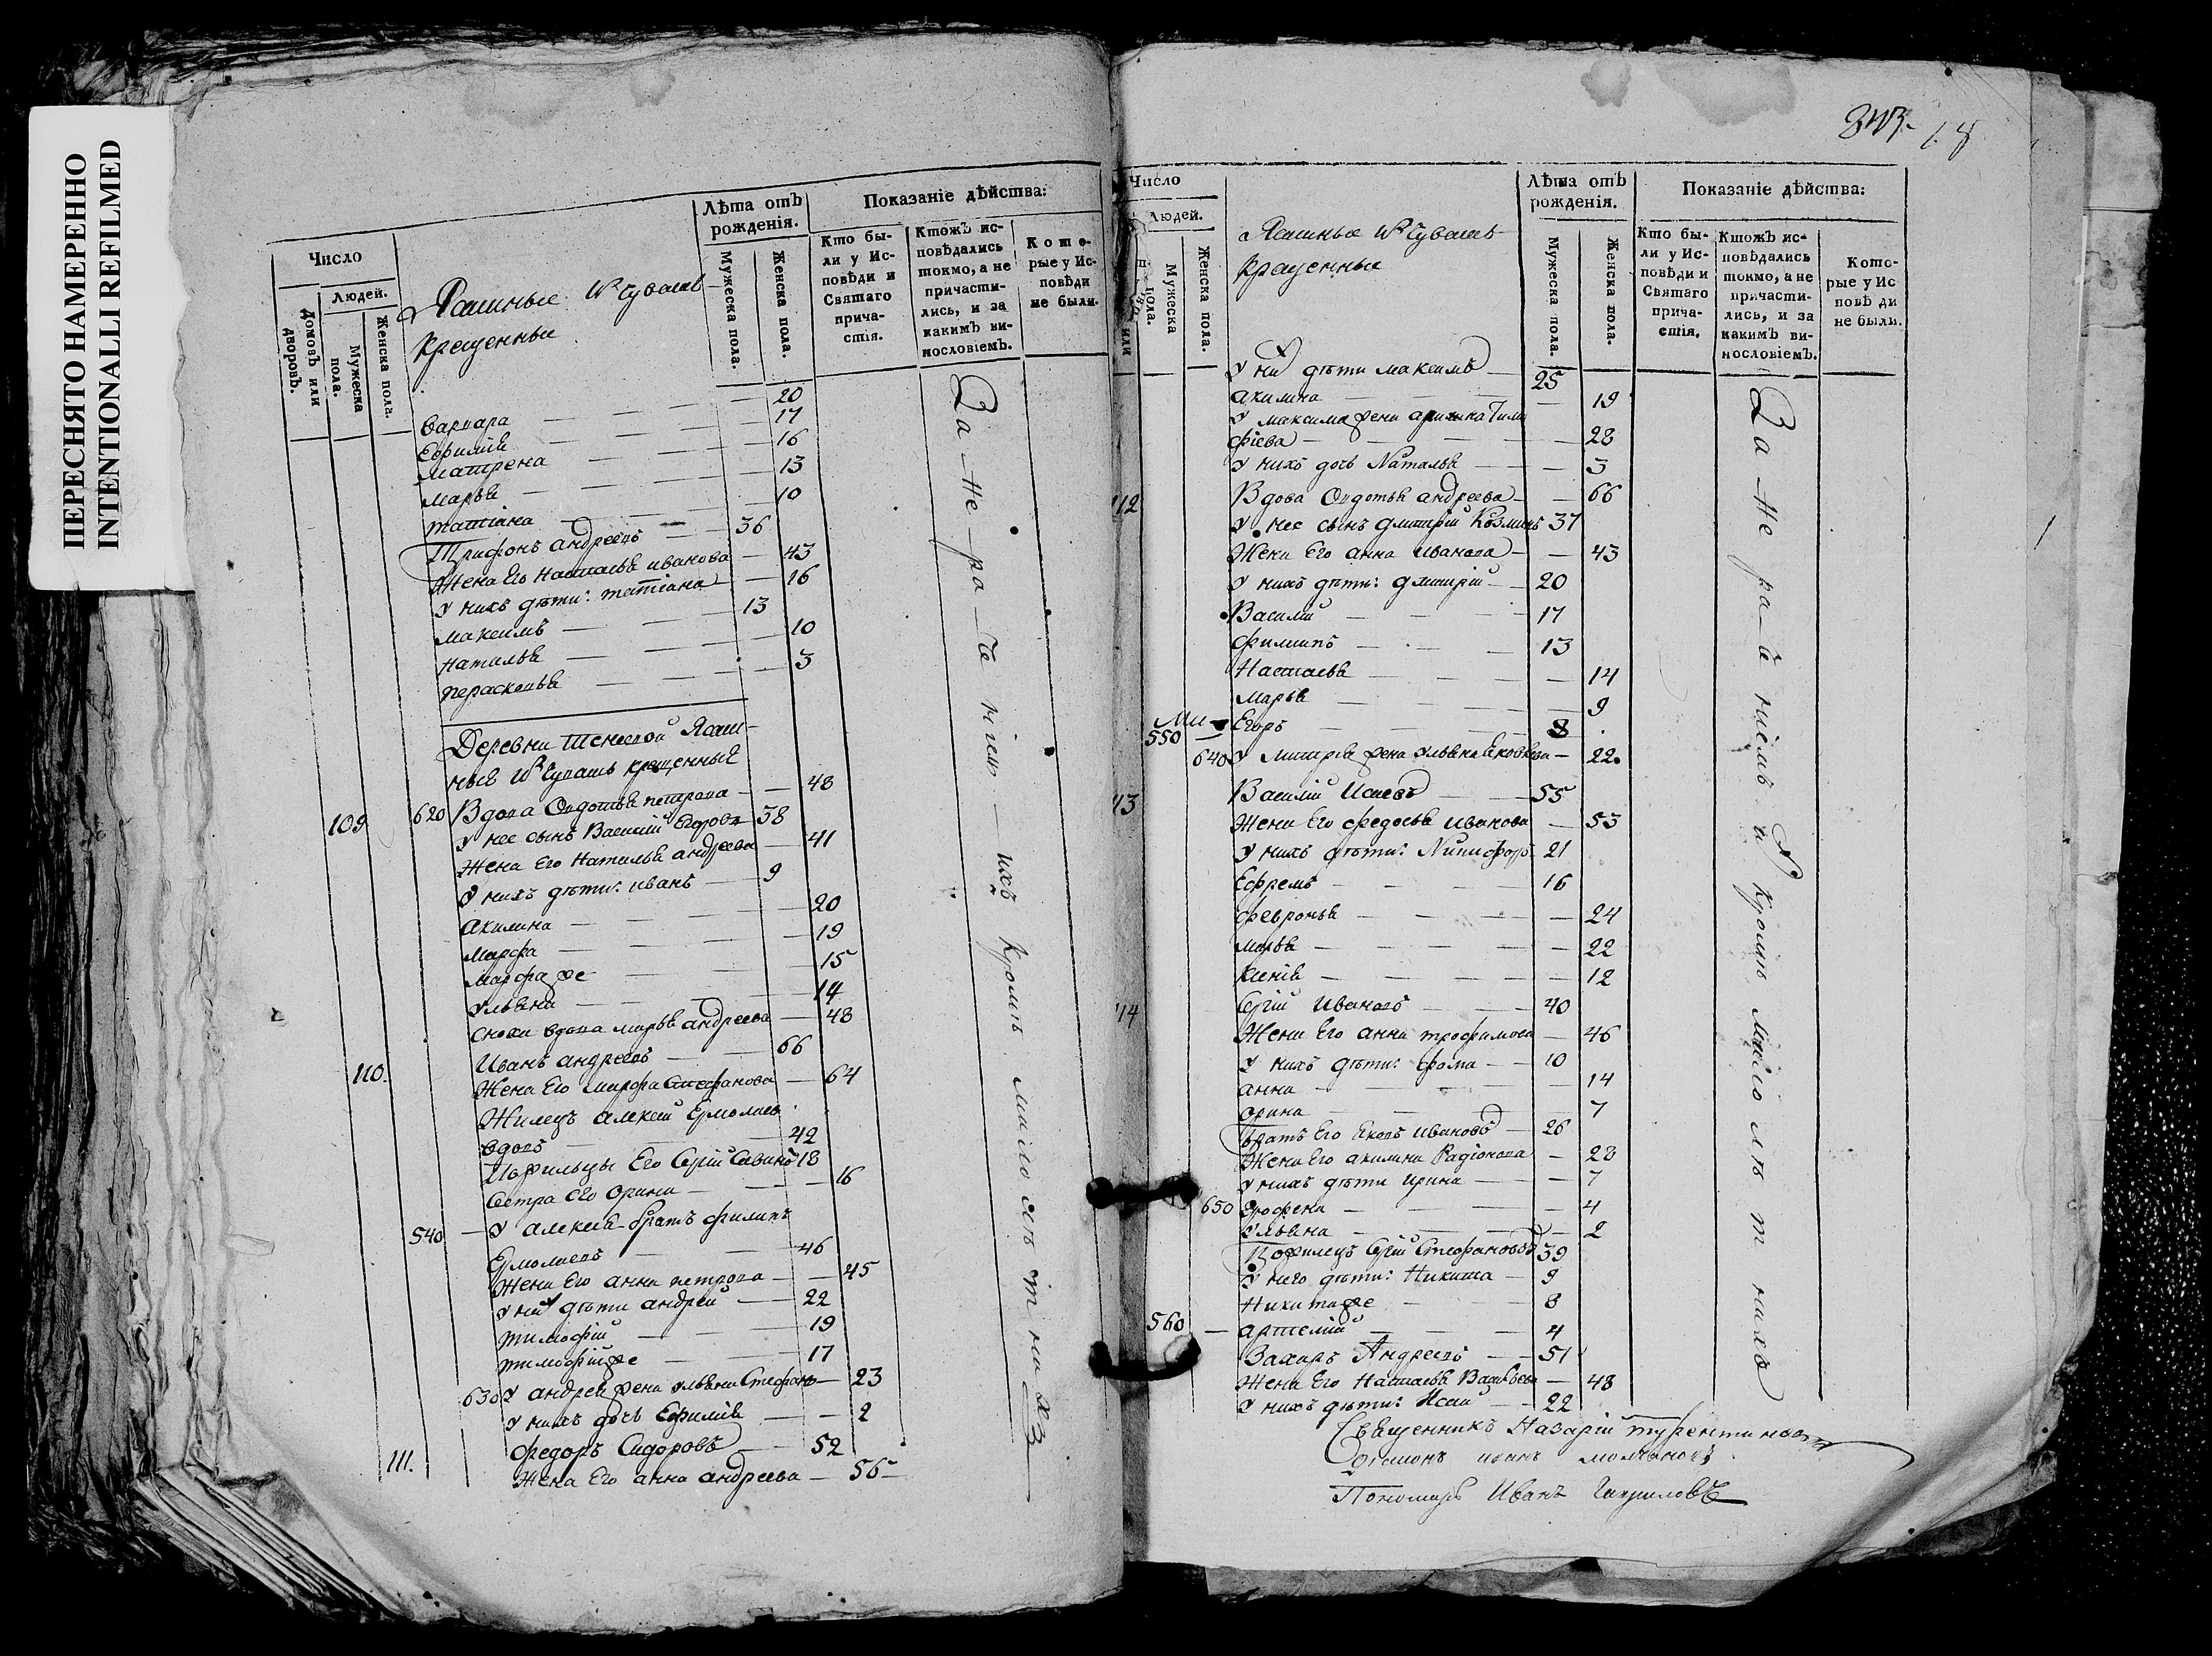 ПЕРЕСНЯТО НАМЕРЕННО
INTENTIONALLI REFILMED
Число
Людей.
Домовъ или дворовъ.
Мужеска пола.
Женска пола.
Ясашные из чувашъ
крещенныя
Лѣта отъ рожденія.
Мужеска пола.
Женска пола.
Показаніе дѣйства:
Кто бы-
ли у Ис-
повѣди и
Святаго
прича-
стія.
Ктожъ ис-
повѣдались
токмо, а не
причасти-
лись, и за
какимъ ви-
нословіемъ.
Кото-
рые у Ис-
повѣди
не были.
Варвара — 20
Евфимія — 17
Матрена — 16
Марья — 13
Татіана — 10
Трифонъ андреевъ — 36
Жена Его Настасья иванова — 43
У нихъ дѣти: татіана — 16
Максимъ — 13
Наталья — 10
Перасковья — 3
Деревни Тенеевой Ясаш-
ныя изъ Чувашъ крещенныя
109 620 Вдова Овдотья петрова — 48
У нее сынъ Василій Егоровъ 38
Жена Его Наталья андреева — 41
У нихъ дѣти: иванъ — 9
Акилина — 20
Марфа — 19
Марфа же — 15
Ульяна — 14
Сноха вдова марья андреева — 48
110. Иванъ андреевъ — 66
Жена Его Марфа Стефанова — 64
Жилецъ алексей Ермолаевъ
вдовъ — 42
Сергій Савинъ 18
Сестра его Орина — 16
540 — У алексея братъ филипъ
Ермолаевъ — 46
Жена Его анна петрова — 45
У них дѣти андрей — 22
тимофій — 19
тимофій же — 17
630 У андрея жена ульяна Стефано — 23
У нихъ дочь Евфимія — 2
111. Федоръ Сидоровъ — 52
Жена Его анна андреева — 56
За не ра че ніемъ ихъ кромѣ малолѣтнахъ
343. 18
Число
Людей.
Мужеска пола.
Женска пола.
Ясашные из чувашъ
крещенные
Лѣта отъ рожденія.
Мужеска пола.
Женска пола.
Показаніе дѣйства:
Кто бы-
ли у Ис-
повѣди и
Святаго
прича-
стія.
Ктожъ ис-
повѣдались
токмо, а не
причасти-
лись, и за
какимъ ви-
нословіемъ.
Кото-
рые у Ис
повѣ ди
не были.
У них дѣти максимъ — 25
акилина — 19
У максима жена аришка Тимо
фіева — 28
У нихъ дочь Наталья — 3
112 Вдова Овдотья андреева — 66
У нее сынъ дмитрій Козминъ 37
Жена Его анна иванова — 43
У нихъ дѣти: дмитрій — 20
Василій — 17
Филипъ — 13
Настасья — 14
Марья — 9
550 Егоръ — 8
640 У митрія жена ульяна яковлева — 22
113 Василій Исаевъ — 55
Жена Его федосья иванова — 53
У нихъ дѣти: Никифоръ 21
Ефремъ — 16
Февронья — 24
Марья — 22
Ксенія — 12
114 Сергій Ивановъ — 40
Жена Его анна трофимова — 46
У нихъ дѣти: фома — 10
анна — 14
орина — 7
Братъ Его Яковъ ивановъ — 26
Жена Его акилина Радіонова — 28
У нихъ дѣти ирина — 7
650 — 4
Ульяна — 2
Сергій Стефановъ 39
У него дѣти: Никита — 9
Никита же — 8
560 — артемій — 4
Захаръ Андреевъ — 51
Жена Его Настасья Васильева — 48
У нихъ дѣти: Исай — 22
За не ра че ніемъ ихъ кромѣ малолѣтнихъ
Священникъ Назарій
Дьяконъ иванъ
Пономарь Иванъ Гавриловъ